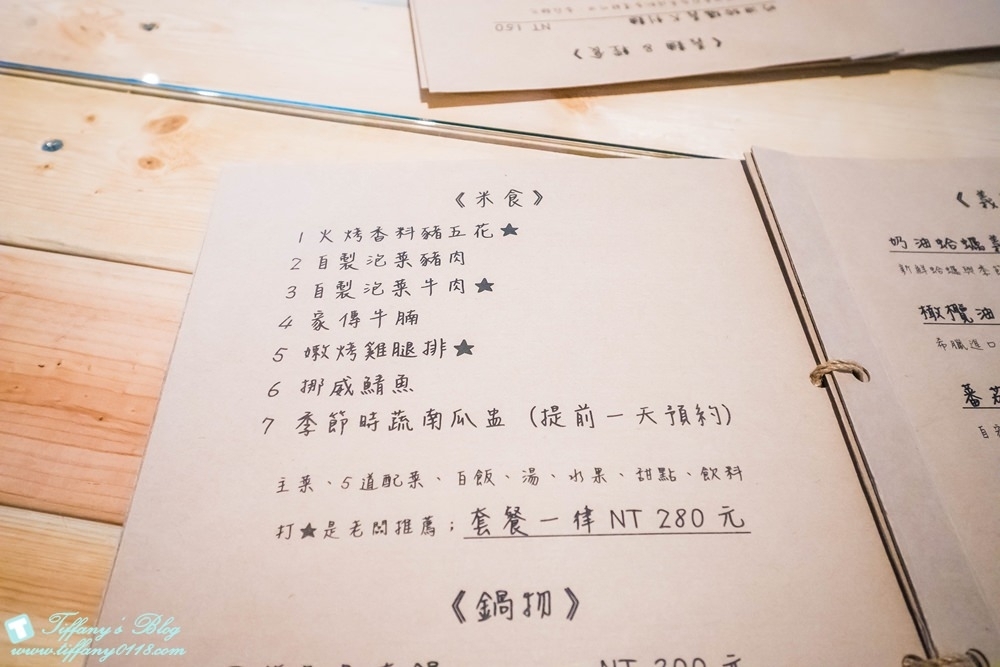 NT 150
《義麵 & 輕食》
《米食》
1 火烤香料豬五花★
2 自製泡菜豬肉
3 自製泡菜牛肉★
4 家傳牛腩
5 嫩烤雞腿排★
6 挪威鯖魚
7 季節時蔬南瓜盅 (提前一天預約)
主菜、5道配菜、白飯、湯、水果、甜點、飲料
打★是老闆推薦；套餐一律 NT 280 元
《鍋物》
NT 200 元
《義
奶油蛤蠣義
新鮮蛤蠣與季節
橄欖油
希臘進口
番茄
自
Tiffany's Blog
www.tiffany0118.com